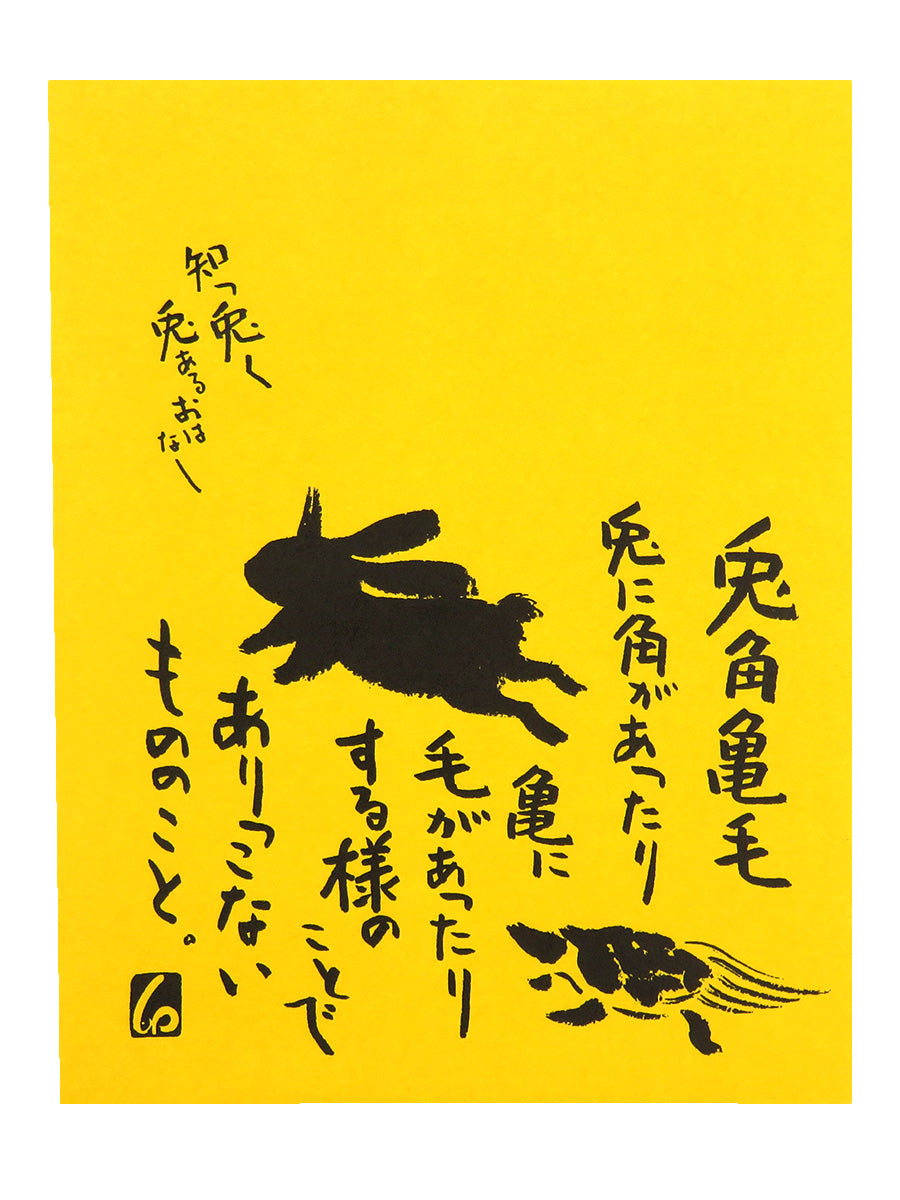 兎角亀毛
兎に角があったり
亀に
毛があったり
する様の
ことで
ありっこない
もののこと。
知っ兎く
兎あるおはなし